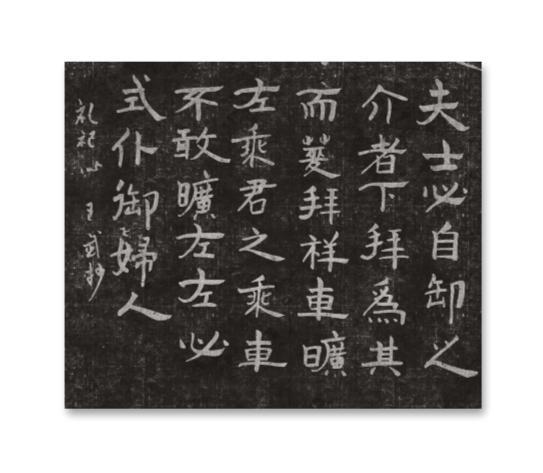 夫士必自卸之
介者下拜爲其
而蓌拜祥車曠
左乘君之乘車
不敢曠左左必
式仆御婦人
礼記 王